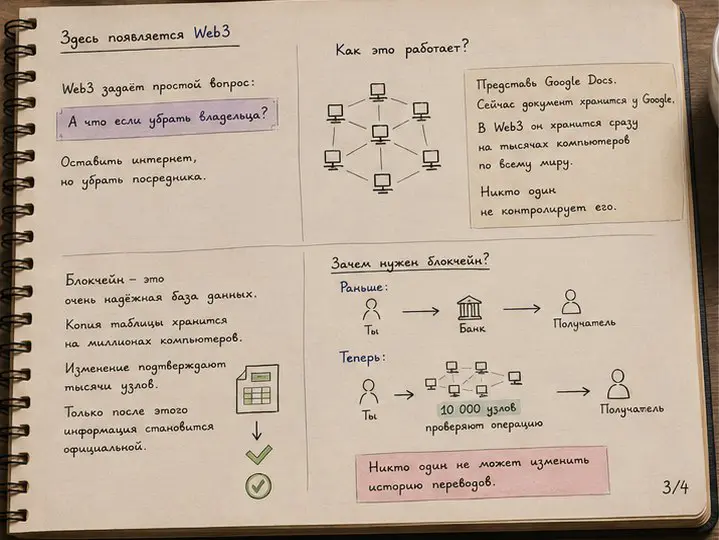 Здесь появляется Web3
Web3 задаёт простой вопрос:
А что если убрать владельца?
Оставить интернет,
но убрать посредника.
Как это работает?
Представь Google Docs.
Сейчас документ хранится у Google.
В Web3 он хранится сразу
на тысячах компьютеров
по всему миру.
Никто один
не контролирует его.
Блокчейн – это
очень надёжная база данных.
Копия таблицы хранится
на миллионах компьютеров.
Изменение подтверждают
тысячи узлов.
Только после этого
информация становится
официальной.
Зачем нужен блокчейн?
Раньше:
Ты
Банк
Получатель
Теперь:
Ты
10 000 узлов
проверяют операцию
Получатель
Никто один не может изменить
историю переводов.
3/4